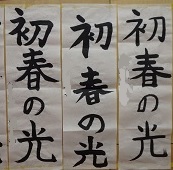 初春の光
初春の光
初春の光